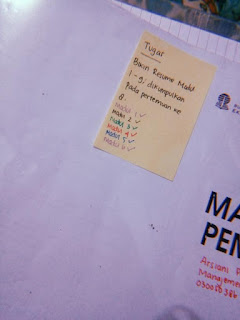 Tugas
Buatin Resume Modul
1-9; dikumpulkan
Pada pertemuan ke
8.
Modul 1 ✓
Modul 2 ✓
Modul 3 ✓
Modul 4 ✓
Modul 5 ✓
Modul 6 ✓
MA
PEN
Arsiani P
Manajemen